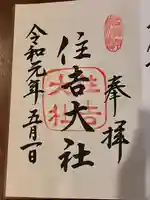 奉拝
住吉大社
住吉大社
令和元年五月一日